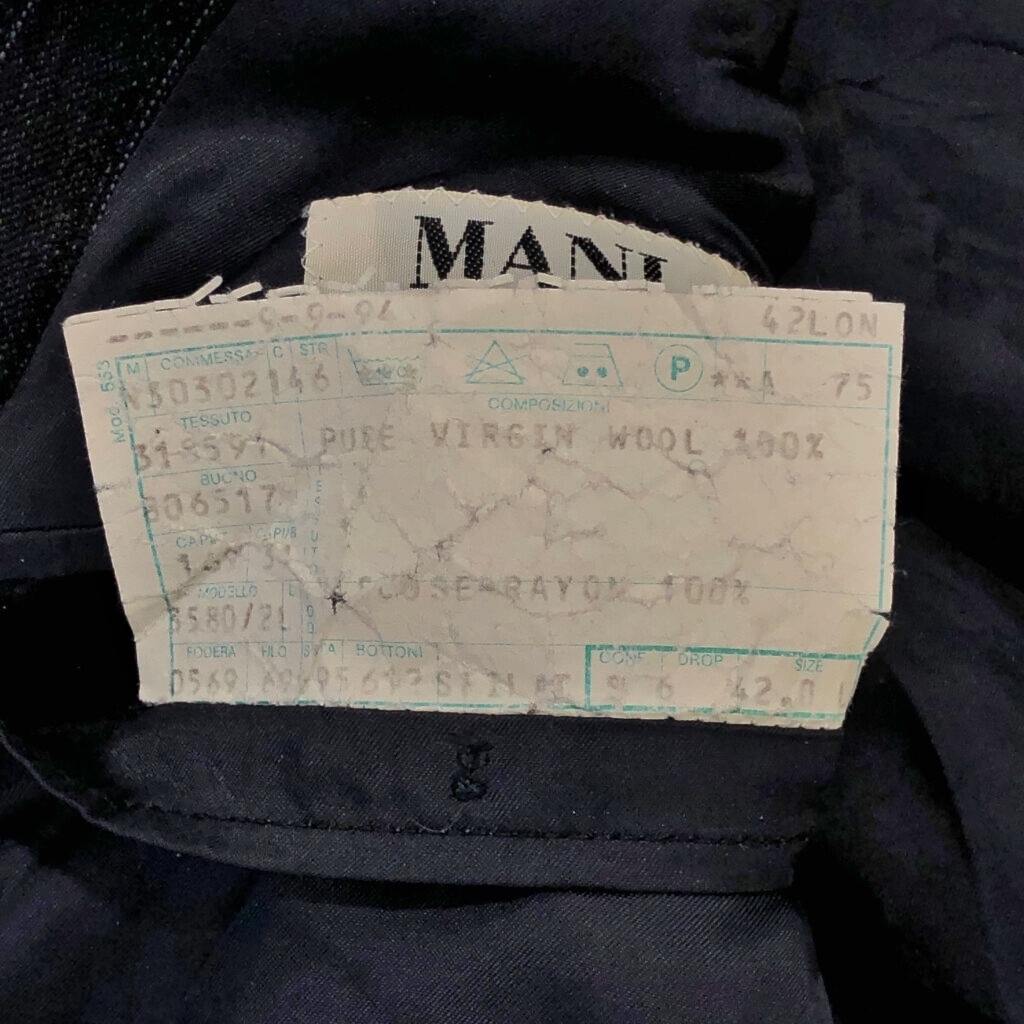 MANI
------9-9-94 42LON
Mod. 553
M COMMESSA C STR
N30302146 P **A 75
COMPOSIZIONI
TESSUTO
318591 PURE VIRGIN WOOL 100%
BUONO
306517
CAPI
MODELLO
5580/21 VISCOSE-RAYON 100%
FODERA FILO BOTTONI
0569
CONF DROP SIZE
9 6 42.0